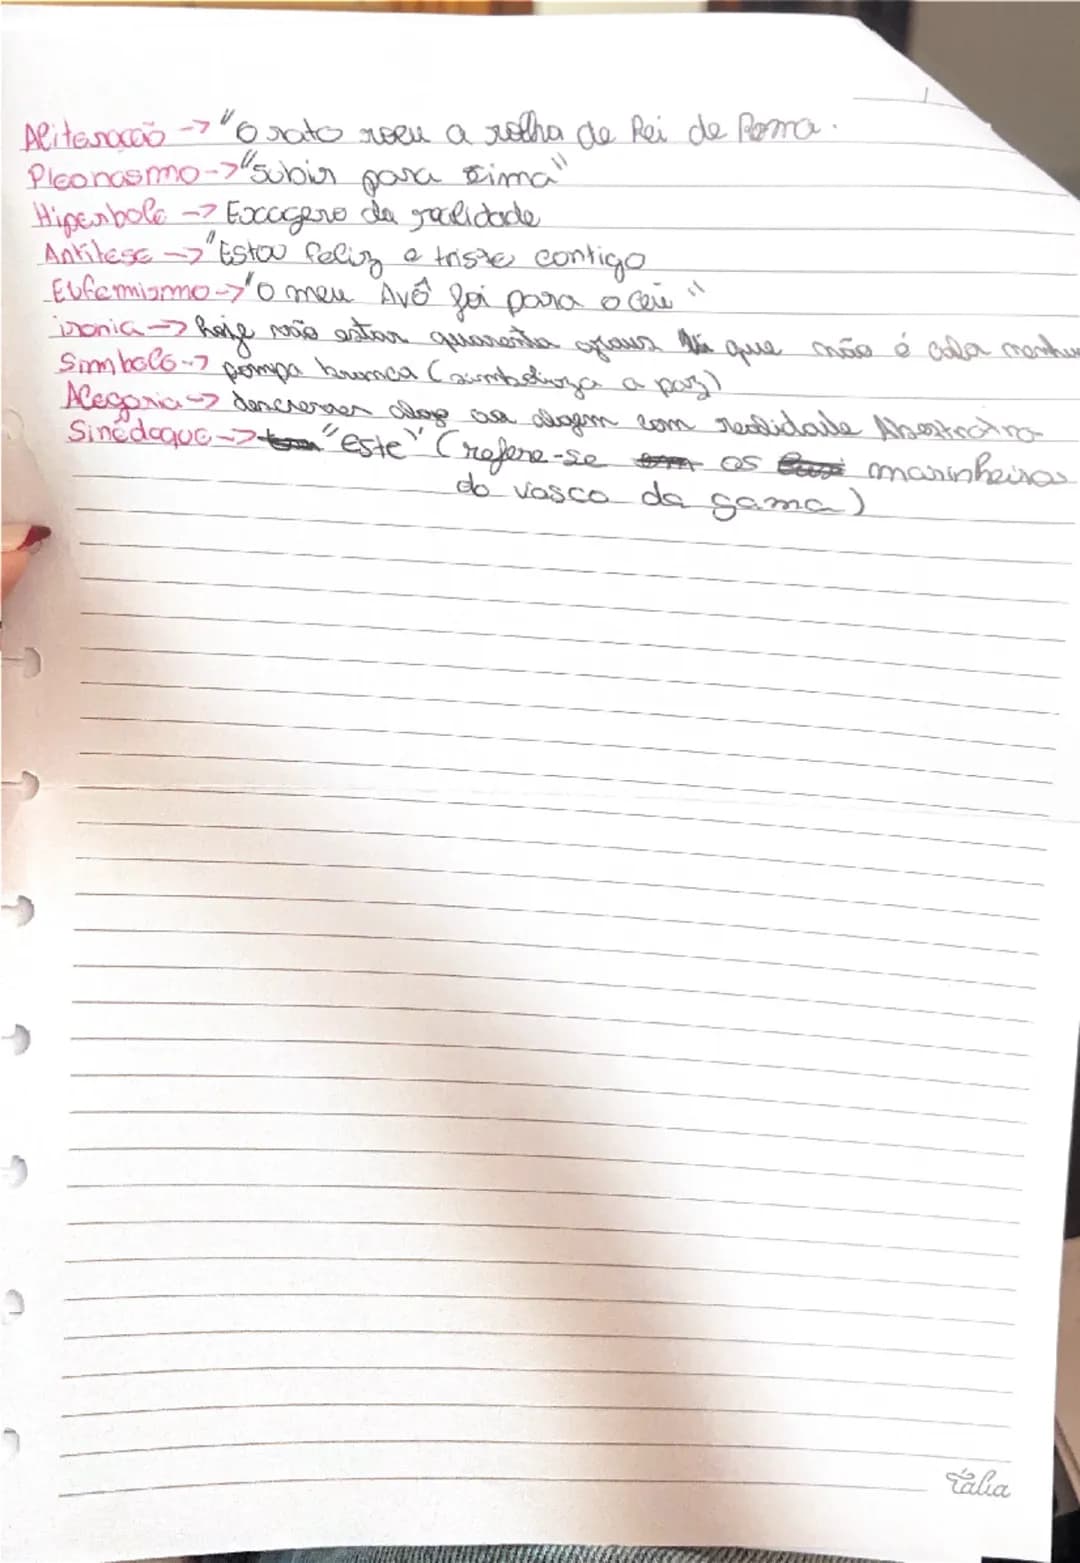 Aliteração -> "O rato roeu a rolha de Rei de Roma.
Pleonasmo -> "Subir para cima"
Hiperbole -> Exagero da realidade
Antitese -> "Estou feliz e triste contigo
Eufemismo -> "O meu Avô foi para o céu"
ironia -> hoje não estar quarenta graus que não é
Simbolo -> pompa branca (simboliza a paz)
Alegoria -> descrever algo ou alguem com realidade Abstrata
Sinédoque -> "este" (refere-se os marinheiros
do vasco da gama)
Tália